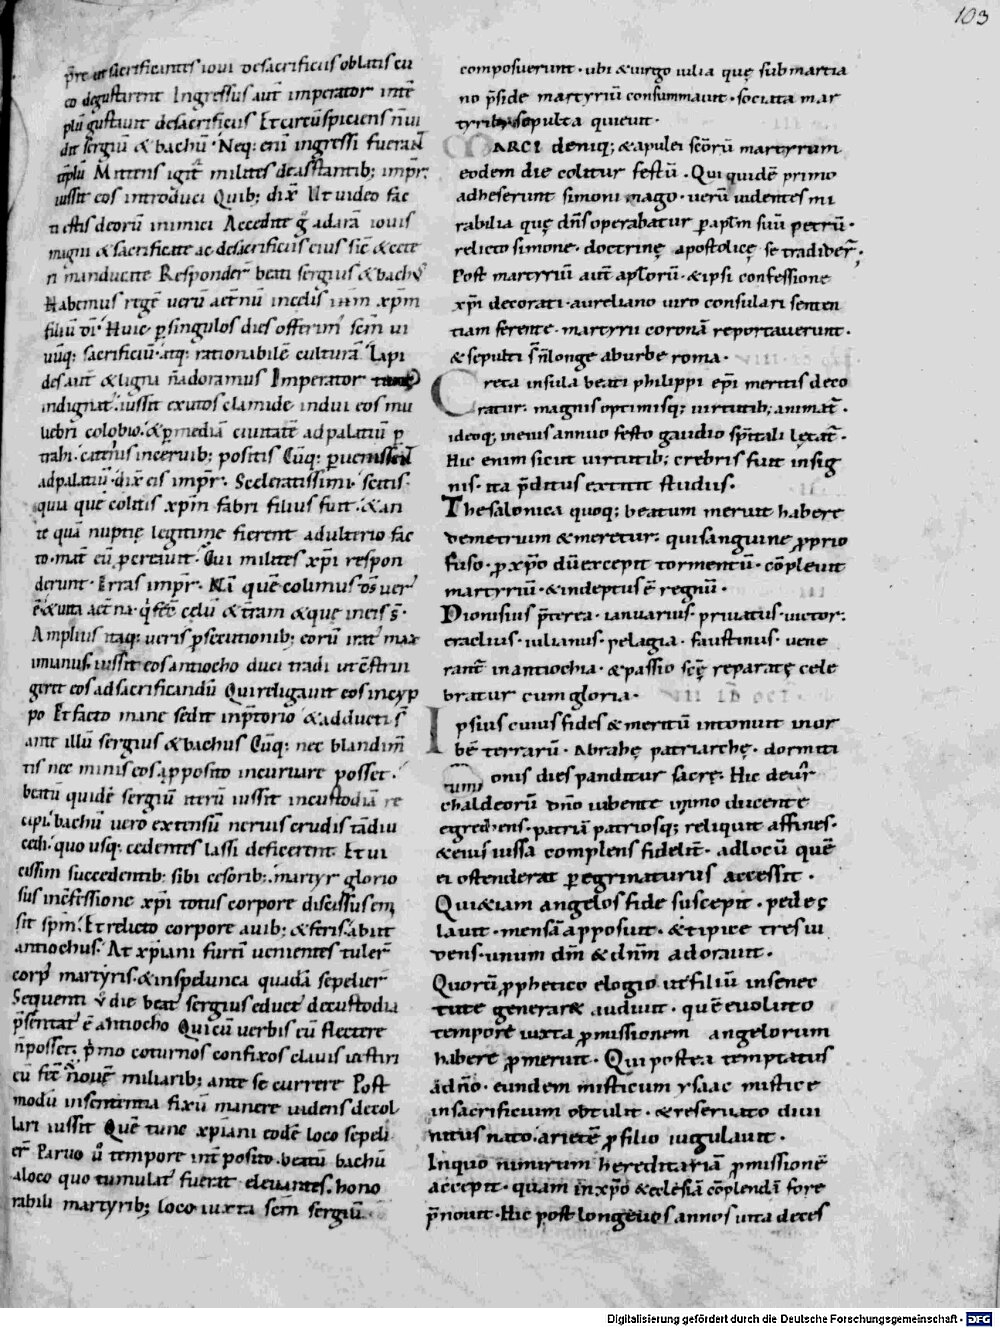 103
p̄re ut sacrificantes ioui de sacrificiis oblatis cū
eo degustarent Ingressus aut̄ imperator intē
plū gustauit de sacrificiis Et circū spiciens n̄ ui
dit sergiū & bachū. Neq; enī ingressi fuerant
tēplū Mittens igit̄ milites de astantib; imp̄r.
iussit eos introduci Quib; dix̄ Ut uideo fac
ti estis deorū inimici Accedite ḡ ad arā iouis
magni & sacrificate ac de sacrificiis eius sic̄ & cete
ri manducate Responder̄ beati sergius & bach᷒
Habemus regē uerū aet̄nū in celis ihm̄ xp̄m
filiū dī. Huic p singulos dies offerim᷒ sem̄ ui
uūq; sacrificiū. atq; rationabilē culturā. Lapi
des aut̄ & ligna n̄ adoramus Imperator
indignat᷒. iussit exutos clamide. indui eos mu
liebri colobio. & p mediā ciuitatē ad palatiū p
trahi. catenis in ceruib; positis Cūq; peruenissent
ad palatiū. dix̄ eis imp̄r. Sceleratissimi. scitis.
quia que colitis xp̄m fabri filius fuit. & an
te quā nuptię legitimę fierent adulterio fac
to. mat̄ eū percepit. Cui milites xp̄i respon
derunt. Erras imp̄r. Nā quē colimus ds̄ uer᷒
ē & uita aet̄na. q̄ fec̄ celū & terram & quę in eis s̄.
Amplius itaq; ueris persecutionib; eorū irat᷒ max
imianus. iussit eos antiocho duci tradi ut c̄strin
geret eos ad sacrificandū Qui religauit eos in cyp
po Et facto mane sedit in p̄torio & adducti s̄
ante illū sergius & bachus Cūq; nec blandim̄
tis nec minis eos a p̄posito incuruare posset.
beatū quidē sergiū iterū iussit in custodiā re
cipi. bachū uero extensū neruis crudis tādiu
cedi. quo usq; cedentes lassi deficerent. Et ui
cissim succedentib; sibi cesorib;. martyr glorio
sus in c̄fessione xp̄i totus corpore discissus em̄
sit sp̄m. Et relicto corpore auib; & feris. abiit
antiochus. At xp̄iani furtī uenientes tuler̄
corp᷒ martyris. & in spelunca quadā sepelier̄
Sequenti ū die beat᷒ sergius educt᷒ de custodia
p̄sentat᷒ ē antiocho Qui cū uerbis eū flectere
n̄ posset. p̄mo coturnos confixos clauis uestiri
eū fec̄ & nouē miliarib; ante se currere Post
modū in sententia fixū manere uidens decol
lari iussit Quē tunc xp̄iani eodē loco sepeli
er̄ Paruo ū tempore int̄posito. beatū bachū
a loco quo tumulat᷒ fuerat eleuantes. hono
rabili martyrib; loco iuxta sc̄m sergiū.
composuerunt. ubi & uirgo iulia quę sub martia
no p̄side martyriū consummauit. sociata mar
tyrib; sepulta quieuit.
MARCI deniq; & apulei sc̄orū martyrum
eodem die colitur festū. Qui quidē primo
adheserunt simoni mago. uerū uidentes mi
rabilia quę dn̄s operabatur p apl̄m suū petrū.
relicto simone. doctrinę apostolicę se tradider̄.
Post martyriū aut̄ apl̄orū. & ipsi confessione
xp̄i decorati. aureliano uiro consulari senten
tiam ferente. martyrii coronā reportauerunt.
& sepulti s̄ n̄ longe ab urbe roma.
Creta insula beati philippi ep̄i meritis deco
ratur. magnis optimisq; uirtutib; animat̄.
ideoq; in eius annuo festo gaudio sp̄itali lętat̄.
Hic enim sicut uirtutib; crebris fuit insig
nis. ita p̄ditus extitit studiis.
Thesalonica quoq; beatum meruit habere
demetrium & meretur. qui sanguine proprio
fuso. p xp̄o dū excepit tormentū. cōpleuit
martyriū. & indeptus ē regnū.
Dionisius p̄terea. ianuarius. priuatus. uictor.
eraclius. iulianus. pelagia. faustinus. uene
rant̄ in antiochia. & passio sc̄ę reparatę cele
bratur cum gloria.
Ipsius cuius fides & meritū intonuit in or
bē terrarū. Abrahę patriarchę. dormiti
onis dies panditur sacrę. Hic de ur
chaldeorū dn̄o iubente immo ducente
egrediens. patriā patriosq; reliquit affines.
& eius iussa complens fidelit̄. ad locū quē
ei ostenderat peregrinaturus accessit.
Qui & iam angelos fide suscepit. pedes
lauit. mensā apposuit. & tipice tres ui
dens. unum dm̄ & dn̄m adorauit.
Quorū prophetico elogio ut filiū in senec
tute generar& audiuit. quē euoluto
tempore iuxta promissionem angelorum
habere promeruit. Qui postea temptatus
a dn̄o. eundem misticum ysaac mistice
in sacrificium obtulit. & reseruato diui
nitus nato. arietē pro filio iugulauit.
In quo nimirum hereditariā promissionē
accepit. quam in xp̄o & ecclesiā cōplendā fore
p̄nouit. Hic post longeuos annos uita deces
Digitalisierung gefördert durch die Deutsche Forschungsgemeinschaft - DFG